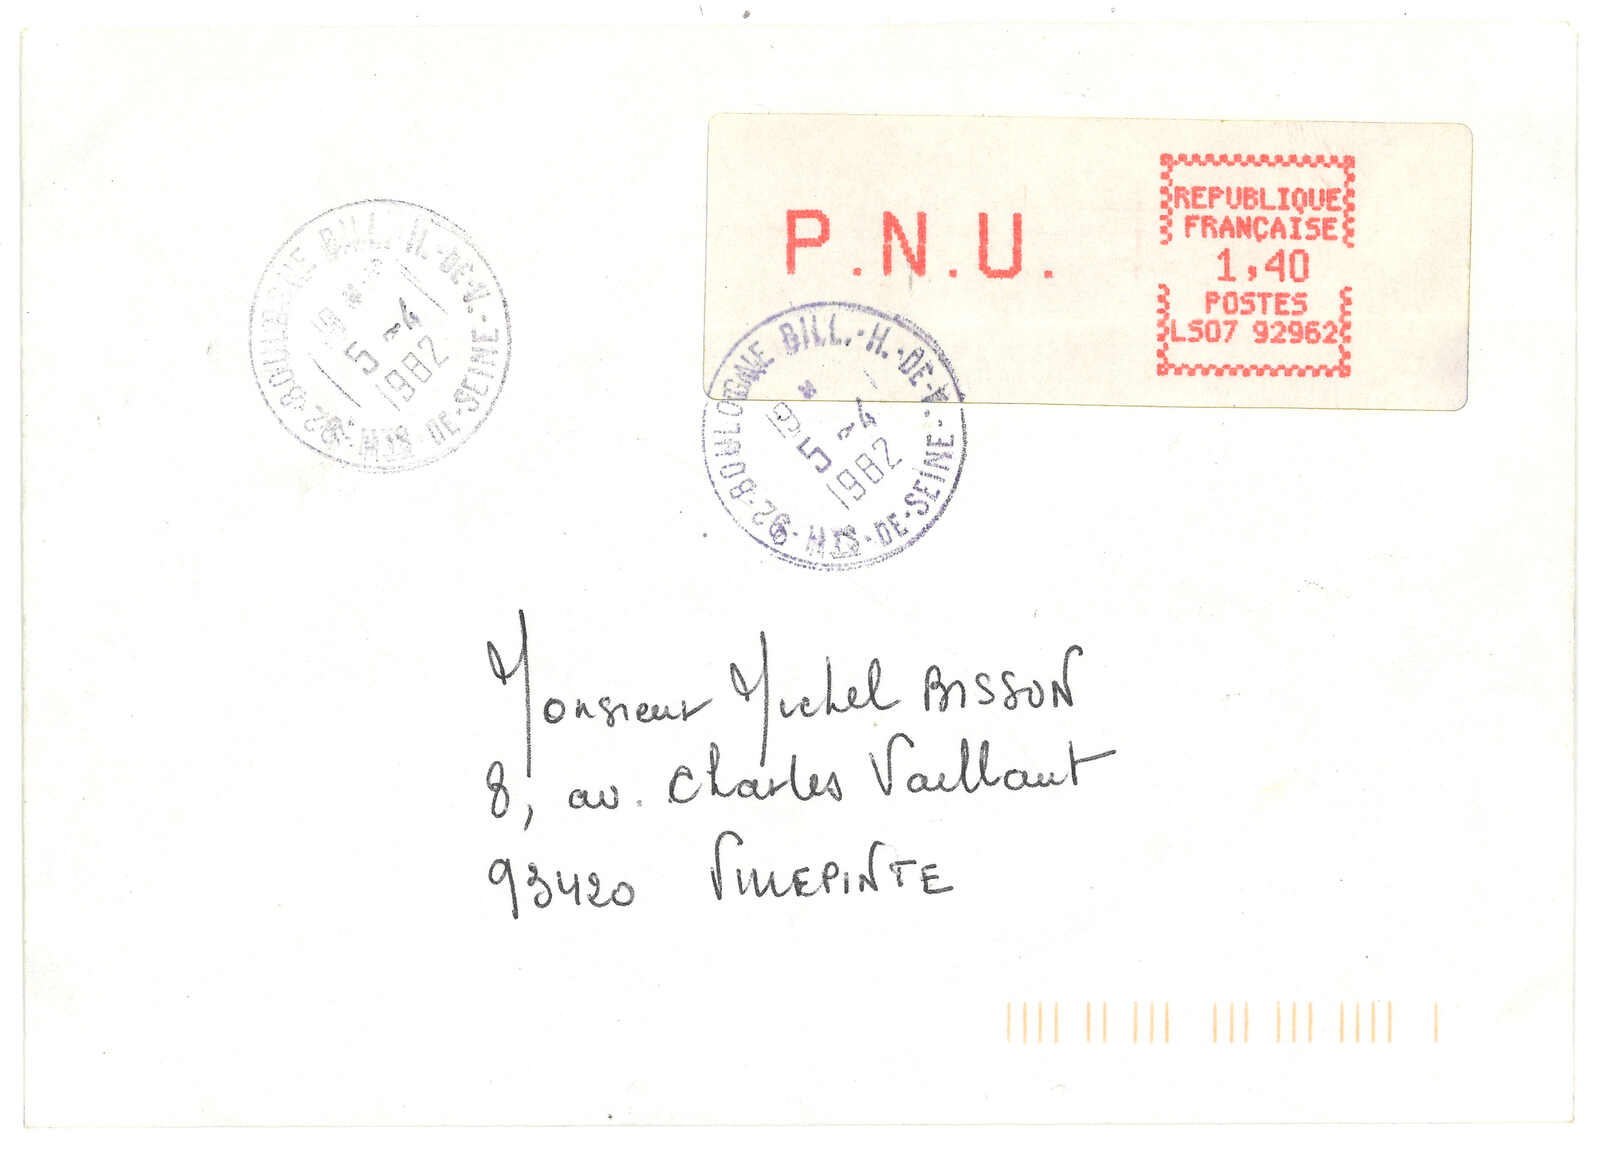 P.N.U.
REPUBLIQUE
FRANÇAISE
1,40
POSTES
LS07 92962
92-BOULOGNE BILL.-H.-DE-V.
19H *
5 -4
1982
HTS-DE-SEINE
92-BOULOGNE BILL.-H.-DE-V.
19H *
5 -4
1982
HTS-DE-SEINE
Monsieur Michel BISSON
8, av. Charles Vaillant
93420 VILLEPINTE